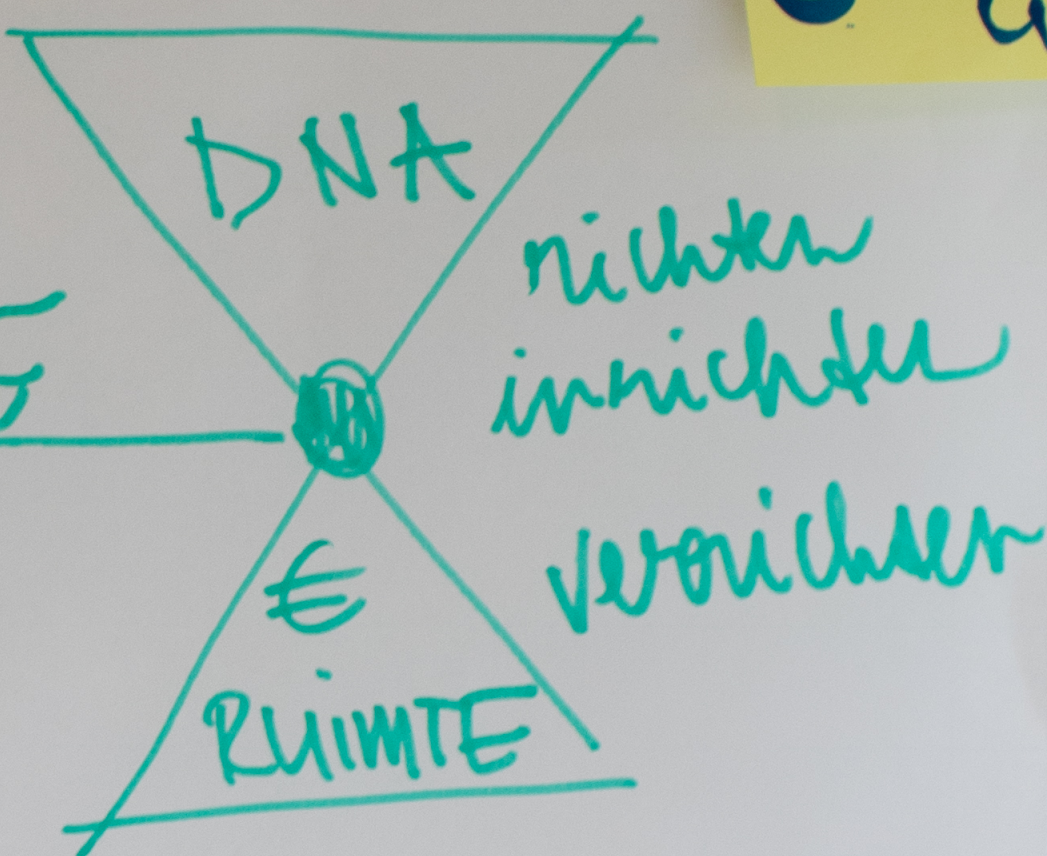 DNA
richten
inrichten
verrichten
€
RUIMTE